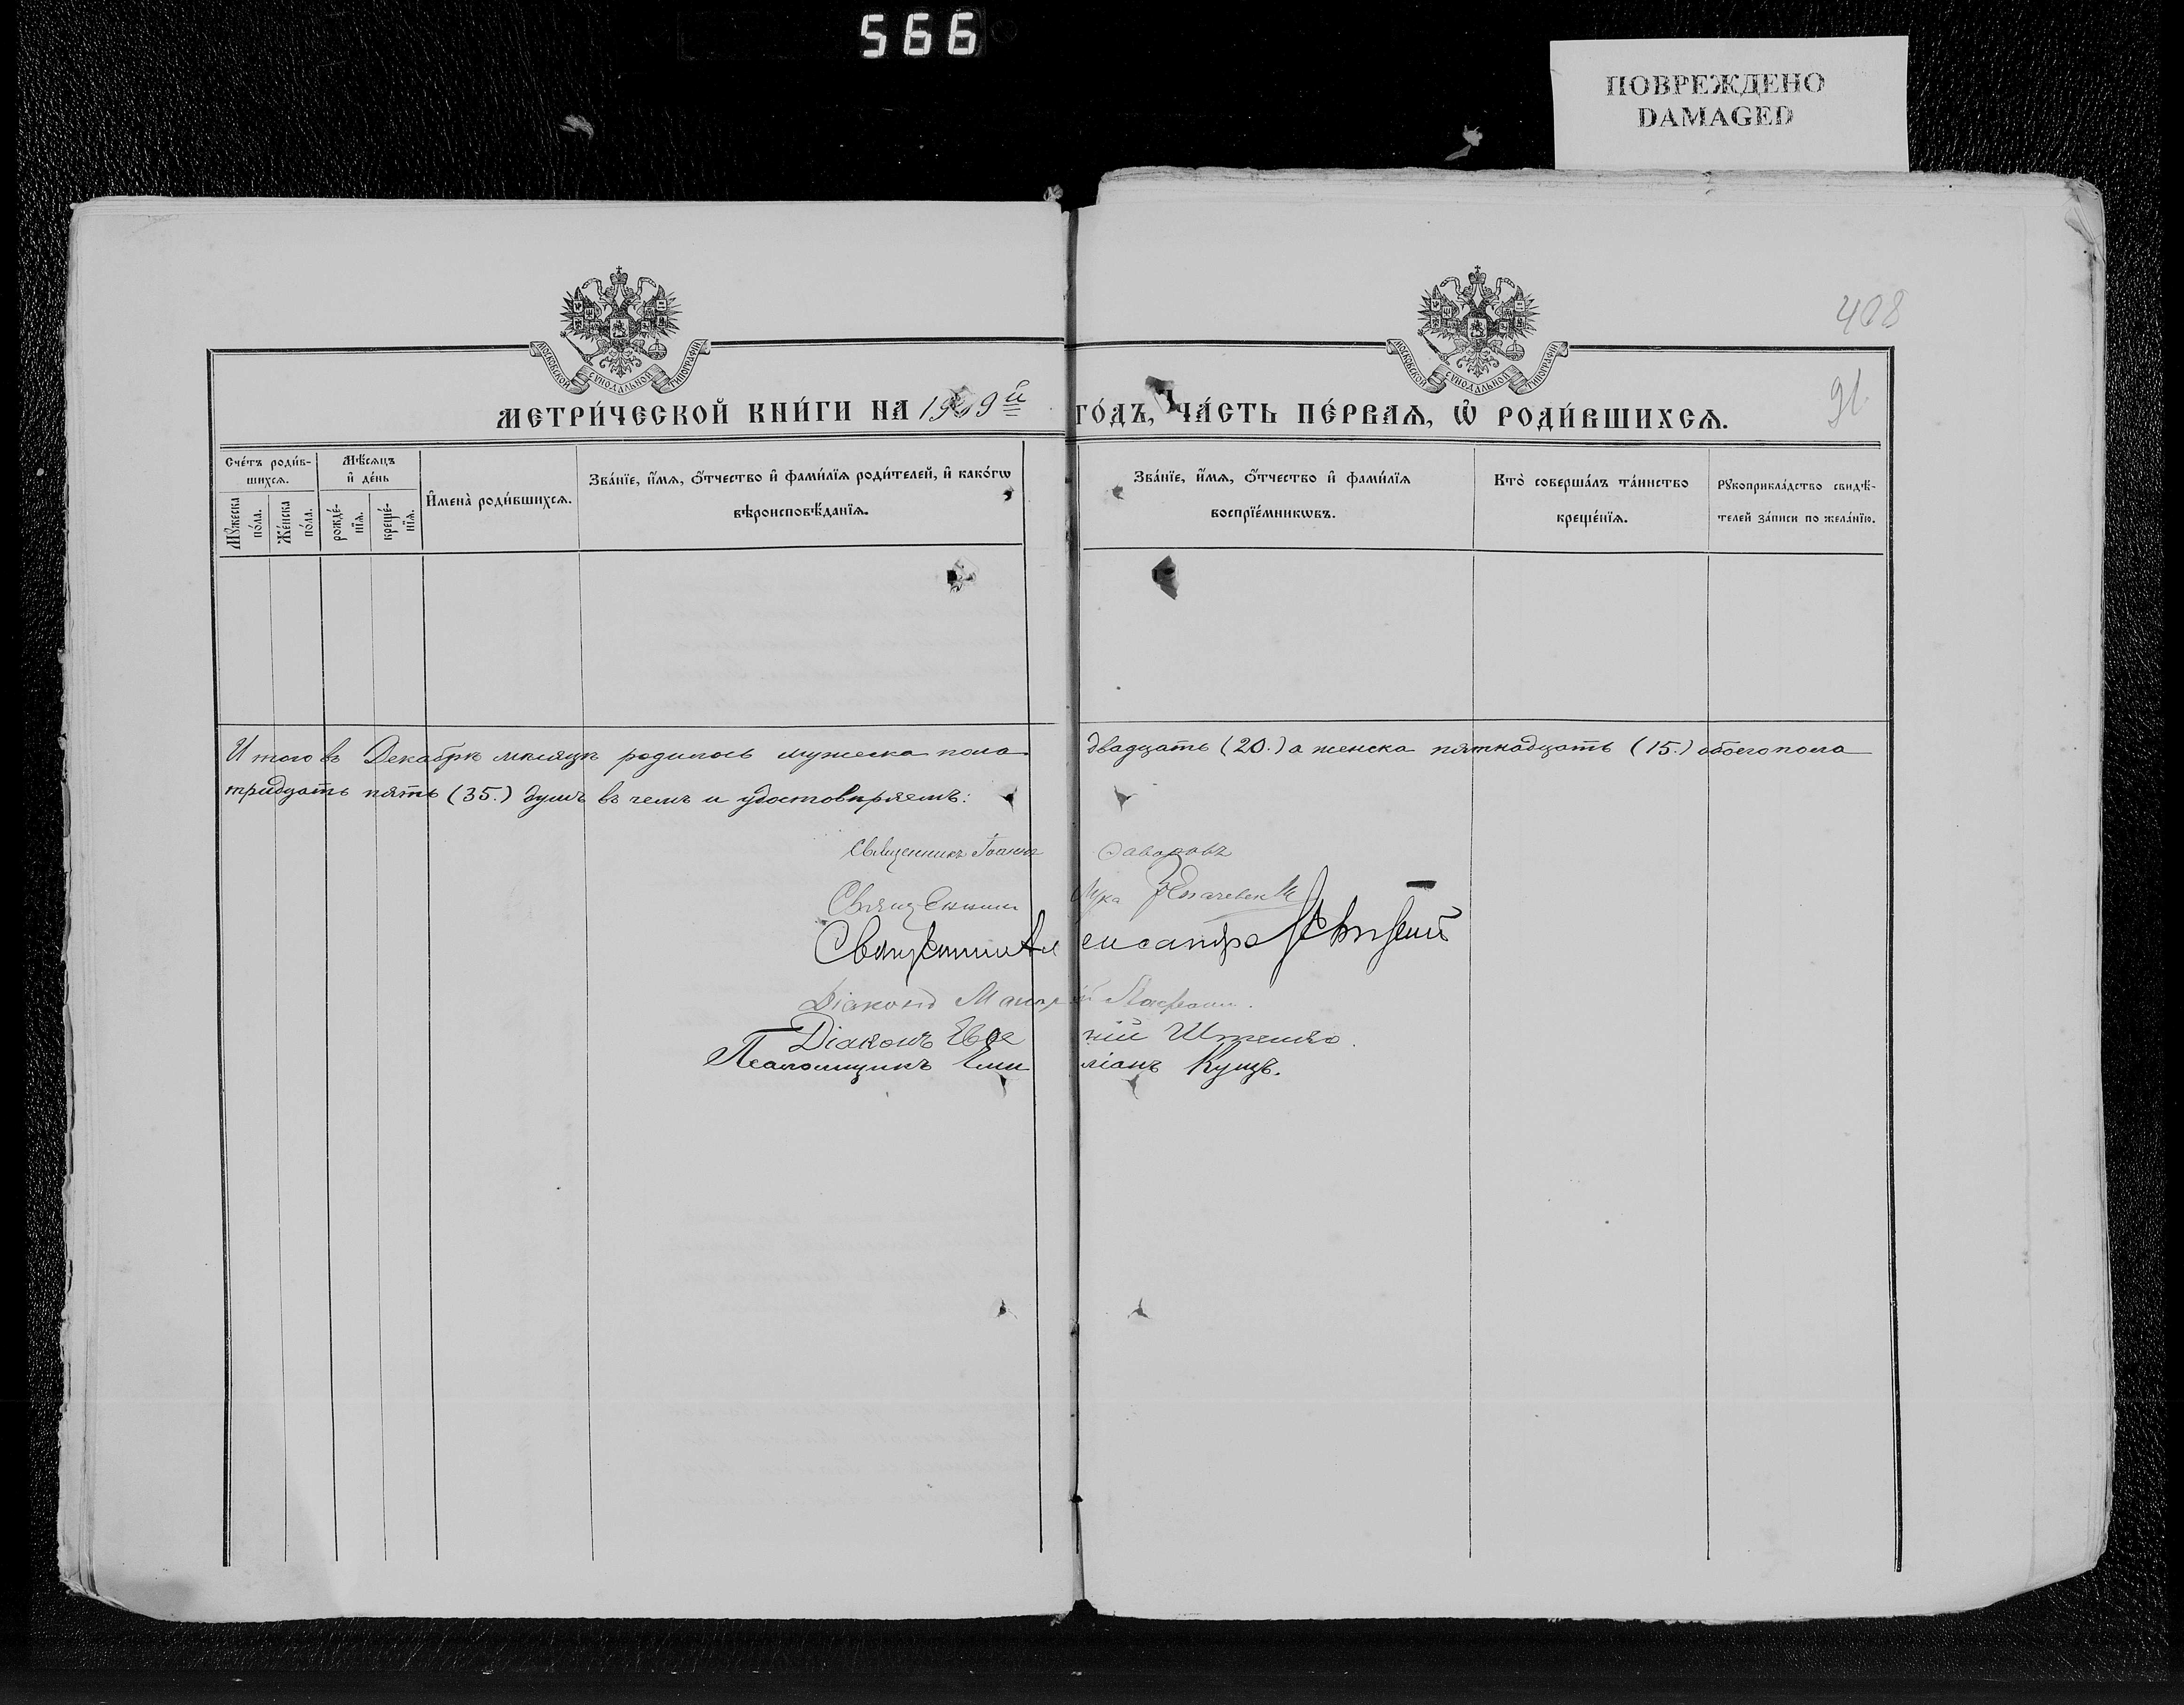 566
ПОВРЕЖДЕНО
DAMAGED
408
91.
МОСКОВСКОЙ СУНОДАЛЬНОЙ ТИПОГРАФІИ
МОСКОВСКОЙ СУНОДАЛЬНОЙ ТИПОГРАФІИ
МЕТРИ́ЧЕСКОЙ КНИ́ГИ НА 1909й ГО́ДЪ, ЧА́СТЬ ПЕ́РВАѦ, Ѡ҆ РОДИ́ВШИХСѦ.
Сче́тъ роди́в-
шихсѧ.
Мꙋ́жеска по́ла.
Же́нска по́ла.
Мѣ́сѧцъ
и҆ де́нь
рожде́-нїѧ.
креще́-нїѧ.
И҆мена̀ роди́вшихсѧ.
Зва́нїе, и҆́мѧ, ѻ҆́тчество и҆ фами́лїѧ роди́телей, и҆ како́гѡ
вѣроисповѣ́данїѧ.
Зва́нїе, и҆́мѧ, ѻ҆́тчество и҆ фами́лїѧ
воспрїе́мникѡвъ.
Кто̀ соверша́лъ та́инство
креще́нїѧ.
Рꙋкоприкла́дство свидѣ́-
телей за́писи по жела́нїю.
Итого въ Декабрѣ мѣсяцѣ родилось мужеска пола двадцать (20.) а женска пятнадцать (15.) обоего пола
тридцать пять (35.) душъ въ чемъ и удостовѣряемъ:
Священникъ Іоаннъ
Священникъ Лука
Священникъ Александръ
Діаконъ
Діаконъ
Псаломщикъ Емиліанъ Кущъ.